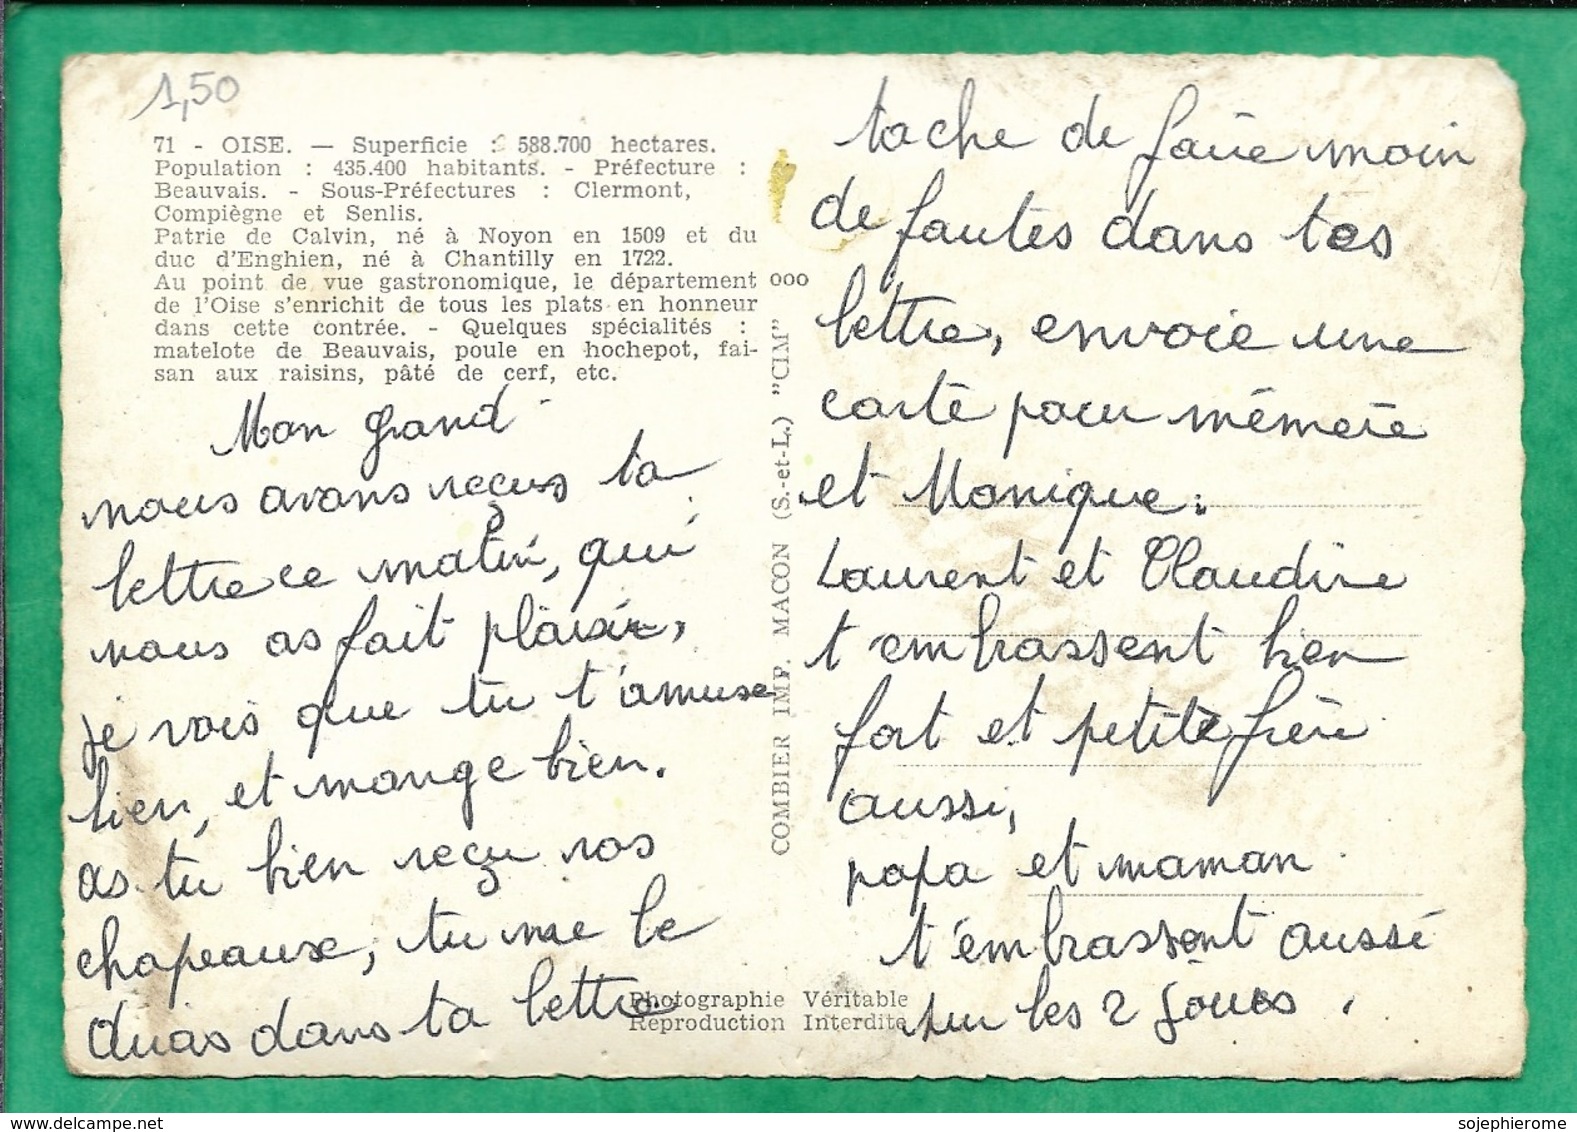 1,50
71 - OISE. — Superficie : 588.700 hectares.
Population : 435.400 habitants. - Préfecture :
Beauvais. - Sous-Préfectures : Clermont,
Compiègne et Senlis.
Patrie de Calvin, né à Noyon en 1509 et du
duc d'Enghien, né à Chantilly en 1722.
Au point de vue gastronomique, le département
de l'Oise s'enrichit de tous les plats en honneur
dans cette contrée. - Quelques spécialités :
matelote de Beauvais, poule en hochepot, fai-
san aux raisins, pâté de cerf, etc.
Mon grand
nous avons reçus ta
lettre ce matin, qui
nous as fait plaisir,
je vois que tu t'amuse
bien, et mange bien.
as tu bien reçu vos
chapeaux, tu me le
diras dans ta lettre
ooo
COMBIER IMP. MACON (S.-et-L.) "CIM"
Photographie Véritable
Reproduction Interdite
tache de faire moin
de fautes dans tes
lettre, envoie une
carte pour mémère
et Monique.
Laurent et Claudine
t'embrassent bien
fort et petite frère
aussi,
papa et maman
t'embrassent aussi
sur les 2 joues.
sojephierome